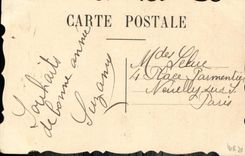 CARTE POSTALE
Souhaits
de bonne année
Suzanne
4 Place Parmentier
Neuilly sur S.
Paris